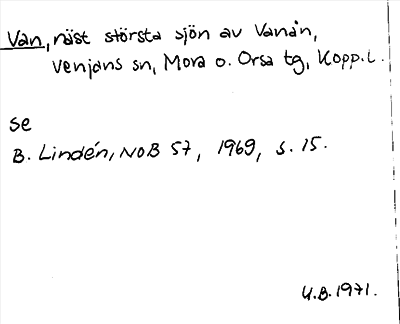 Van, näst största sjön av Vanån,
Venjans sn, Mora o. Orsa tg, Kopp. L.
se
B. Lindén, NoB 57, 1969, s. 15.
U.B. 1971.